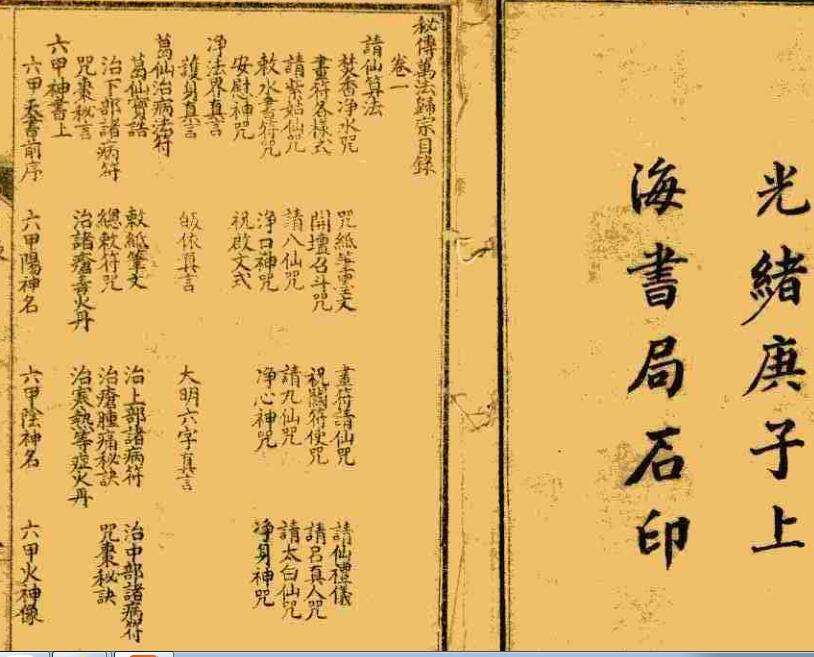 光緒庚子上
海書局石印
秘傳萬法歸宗目錄
卷一
請仙算法
焚香净水咒 咒紙筆墨文 畫符請仙咒 請仙禮儀
畫符各樣式 開壇召斗咒 祝關符使咒 請呂真人咒
請紫姑仙咒 請八仙咒 請九仙咒 請太白仙咒
敕水書符咒 净口神咒 净心神咒 净身神咒
安慰神咒 祝啟文式
净法界真言
護身真言 皈依真言 大明六字真言
葛仙治病法符
葛仙寶誥 敕紙筆文 治上部諸病符 治中部諸病符
治下部諸病符 總敕符咒 治瘡腫痛秘訣 咒棗秘訣
咒棗秘言 治諸瘡毒火丹 治寒熱等症火丹
六甲神書上
六甲天書前序 六甲陽神名 六甲陰神名 六甲火神像